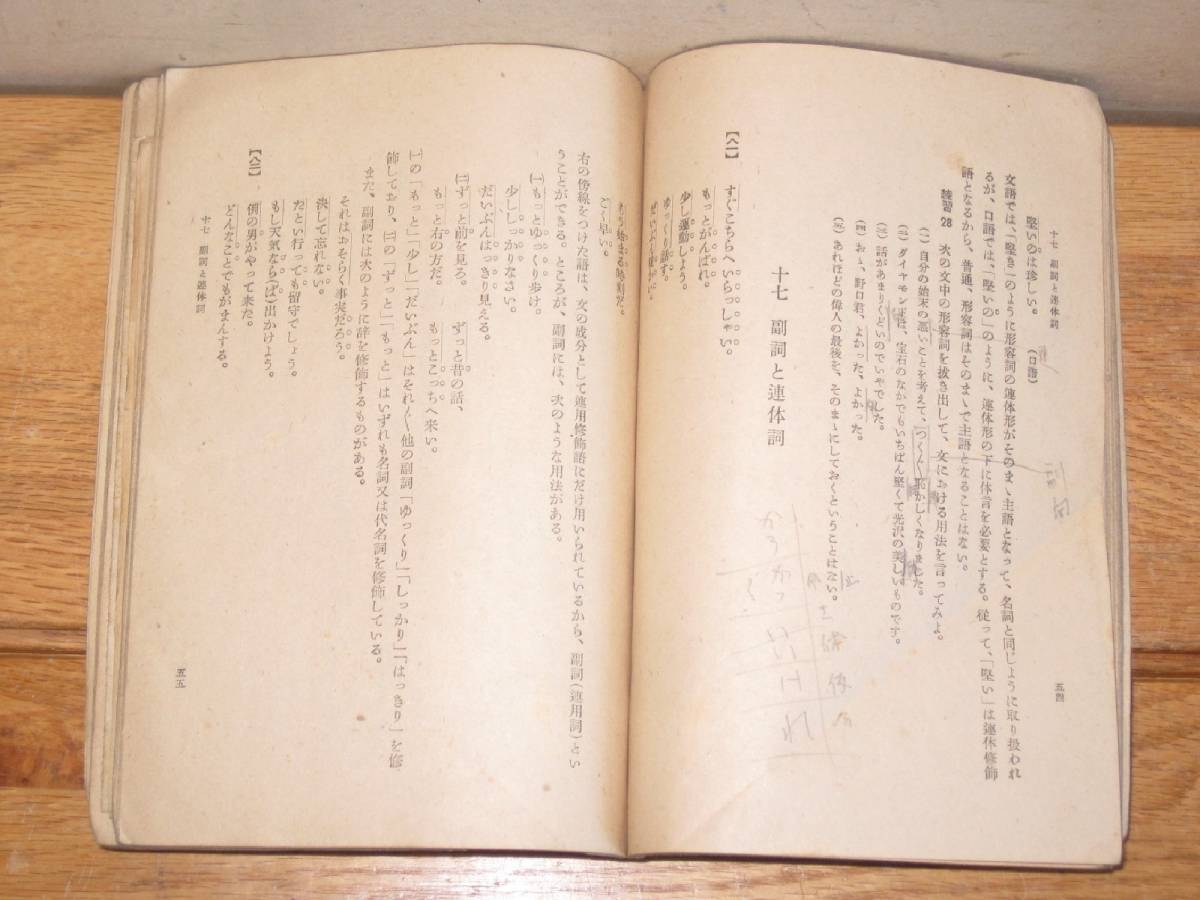 十七 副詞と連体詞
五四
堅いのは珍しい。 (口語)
文語では、「堅き」のように形容詞の連体形がそのまゝ主語となって、名詞と同じように取り扱われ
るが、口語では、「堅いの」のように、連体形の下に体言を必要とする。従って、「堅い」は連体修飾
語となるから、普通、形容詞はそのまゝで主語となることはない。
練習 28 次の文中の形容詞を抜き出して、文における用法を言ってみよ。
(一) 自分の始末の悪いことを考えて、つくづく恥かしくなりました。
(二) ダイヤモンドは、宝石のなかでもいちばん堅くて光沢の美しいものです。
(三) 話があまりくどいのでいやでした。
(四) おゝ、野口君、よかった、よかった。
(五) あれほどの偉人の最後を、そのまゝにしておくということはない。
十七 副詞と連体詞
【八一】
すぐこちらへいらっしゃい。
もっとがんばれ。
少し運動しよう。
ゆっくり話す。
だいぶん
もう始まる時刻だ。
ごく早い。
右の傍線をつけた語は、文の成分として連用修飾語にだけ用いられているから、副詞(連用詞)とい
うことができる。ところが、副詞には、次のような用法がある。
(一) もっとゆっくり歩け。
少ししっかりなさい。
だいぶんはっきり見える。
(二) ずっと前を見ろ。 ずっと昔の話、
もっと右の方だ。 もっとこっちへ来い。
(一)の「もっと」「少し」「だいぶん」はそれぞれ他の副詞「ゆっくり」「しっかり」「はっきり」を修
飾しており、(二)の「ずっと」「もっと」はいずれも名詞又は代名詞を修飾している。
また、副詞には次のように辞を修飾するものがある。
それはおそらく事実だろう。
決して忘れない。
たとい行っても留守でしょう。
もし天気なら(ば)出かけよう。
【八二】
例の男がやって来た。
どんなことでもがまんする。
十七 副詞と連体詞
五五